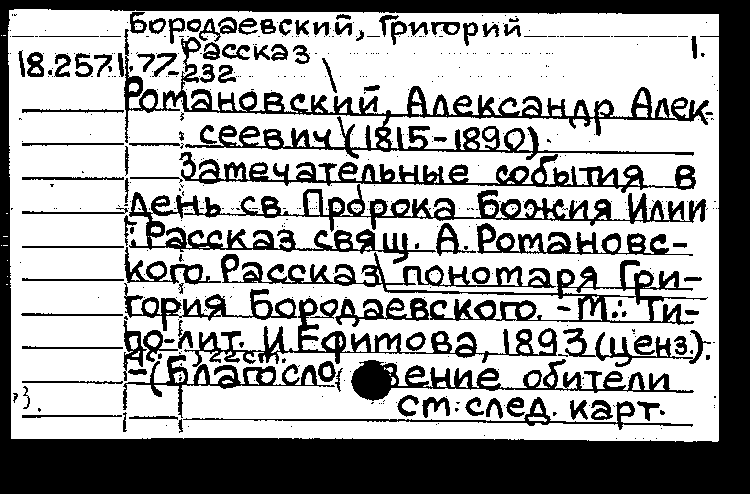 Бородаевский, Григорий
Рассказ 1.
18.257.1.77-
232
Романовский, Александр Алек-
сеевич (1815-1890).
Замечательные события в
день св. Пророка Божия Илии
: Рассказ свящ. А. Романовс-
кого. Рассказ пономаря Гри-
гория Бородаевского. - М.: Ти-
по-лит. И.Ефимова, 1893 (ценз.).
22 см.
-(Благословение обители
см. след. карт.